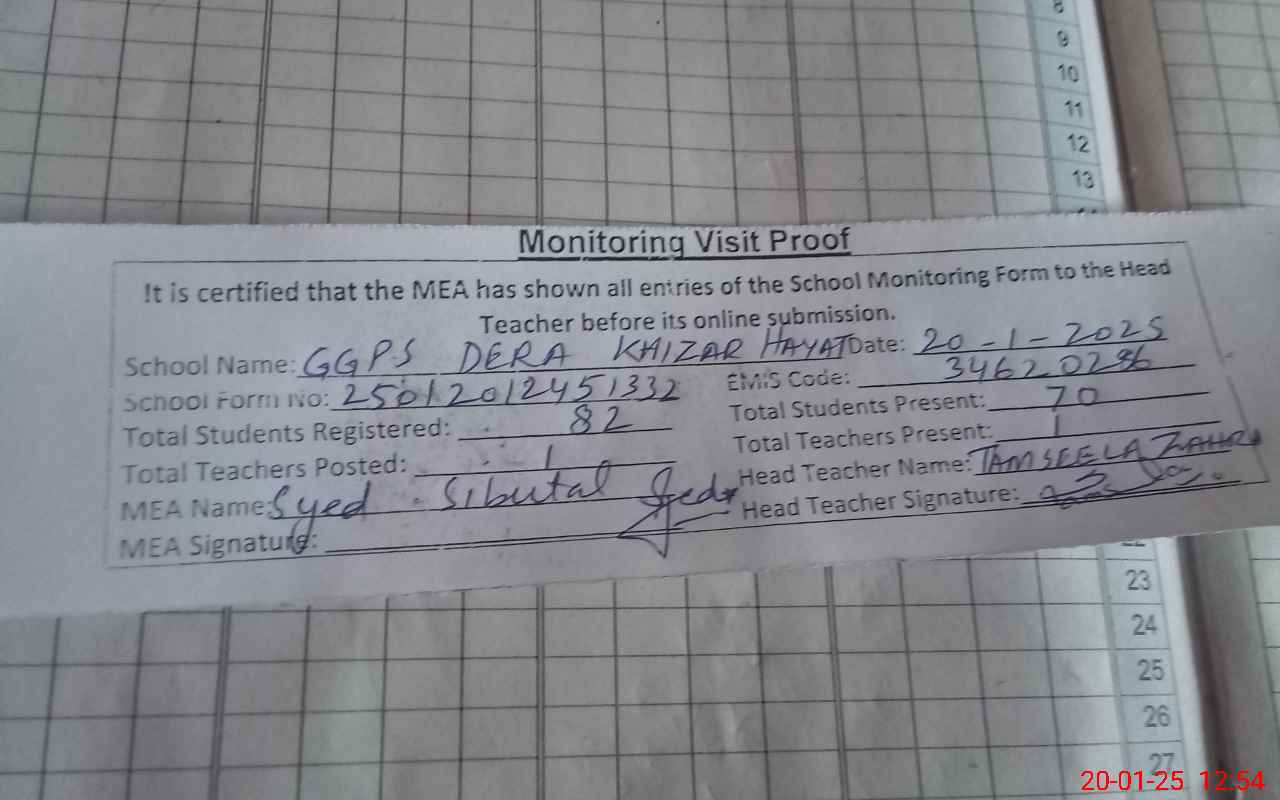 8
9
10
11
12
13
Monitoring Visit Proof
It is certified that the MEA has shown all entries of the School Monitoring Form to the Head
Teacher before its online submission.
School Name: GGPS DERA KHIZAR HAYAT Date: 20-1-2025
School Form No: 25012012451332 EMIS Code: 34620286
Total Students Registered: 82 Total Students Present: 70
Total Teachers Posted: 1 Total Teachers Present: 1
MEA Name: Syed Sibutal Head Teacher Name: TAMSEELA ZAHRA
MEA Signature: Head Teacher Signature:
22
23
24
25
26
27
20-01-25 12:54